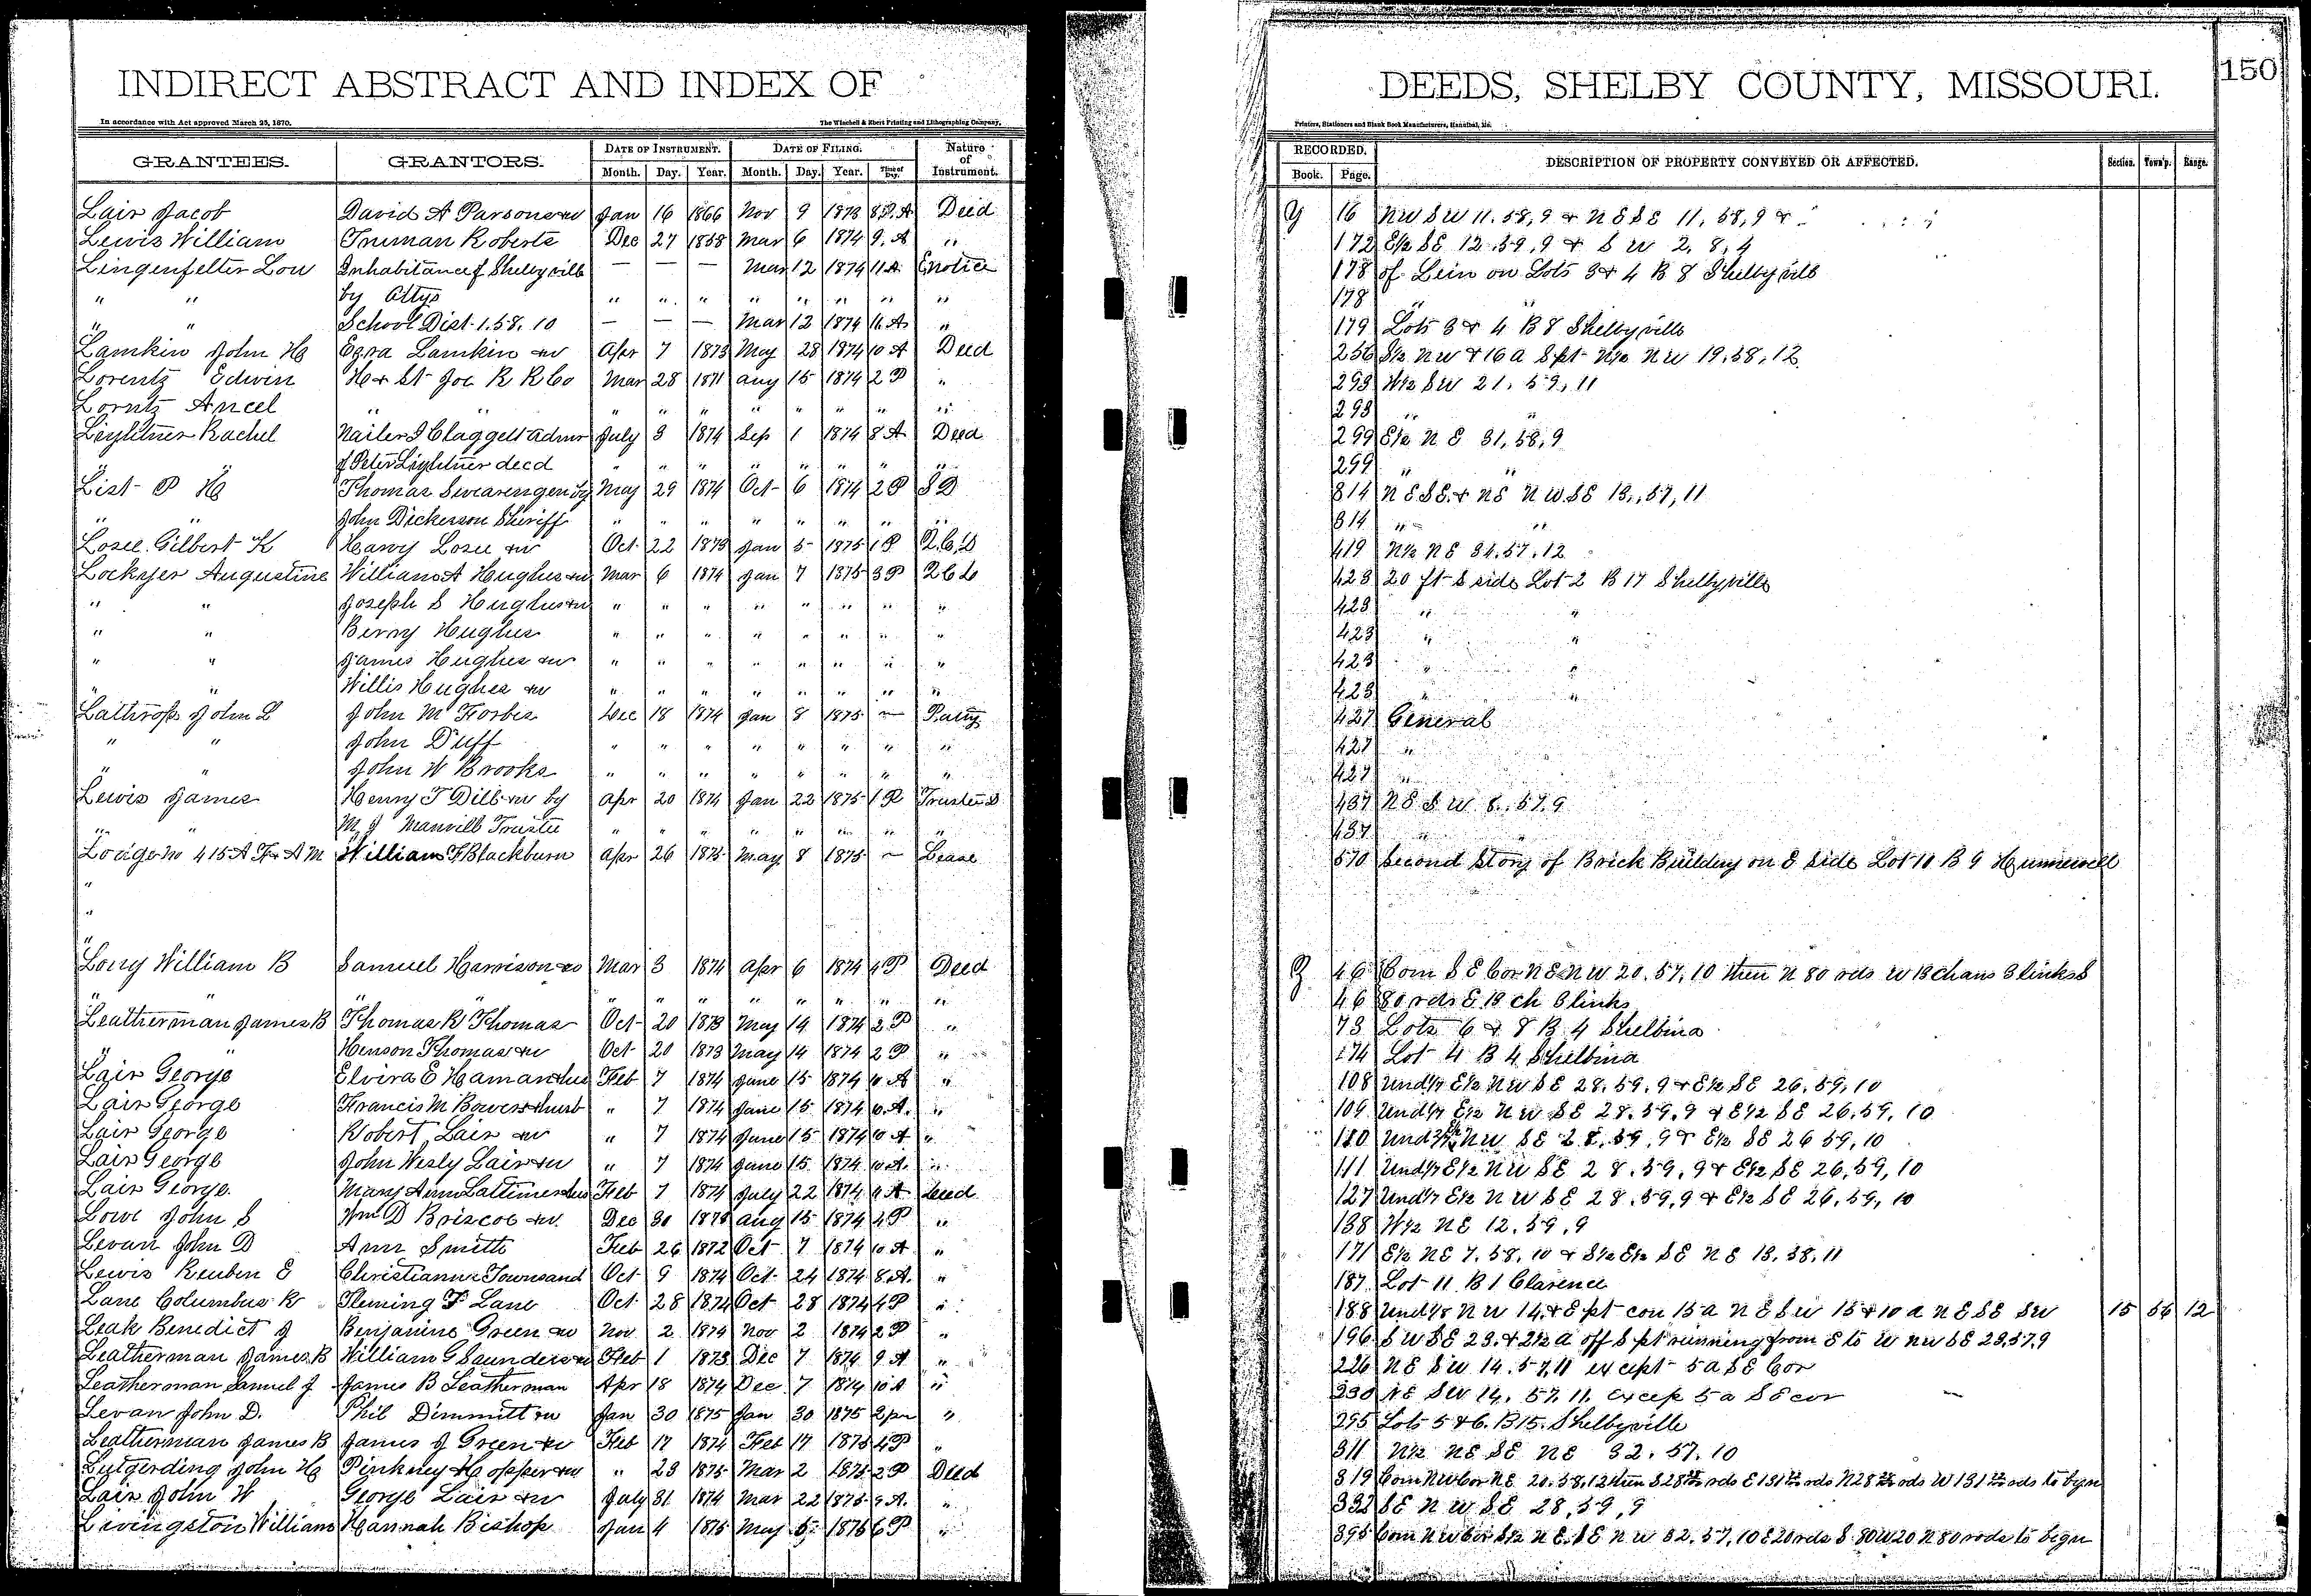 INDIRECT ABSTRACT AND INDEX OF DEEDS, SHELBY COUNTY, MISSOURI. 150
In accordance with Act approved March 25, 1870. The Winchell & Ebert Printing and Lithographing Company, Printers, Stationers and Blank Book Manufacturers, Hannibal, Mo.
GRANTEES. GRANTORS. DATE OF INSTRUMENT. DATE OF FILING. Nature of Instrument. RECORDED. DESCRIPTION OF PROPERTY CONVEYED OR AFFECTED. Section. Town'p. Range.
Month. Day. Year. Month. Day. Year. Time of Day. Book. Page.
Lair Jacob David A Parsons &w Jan 16 1866 Nov 9 1873 8 A Deed Y 16 NW SW 11.58,9 & NE SE 11,58,9 &
Lewis William Truman Roberts Dec 27 1858 Mar 6 1874 9 A " 172 E½ SE 12.59.9 & SW 2, 8, 9
Lingenfelter Lou Inhabitance of Shelbyville — — — Mar 12 1874 11 A notice 178 of Lein on Lots 3 & 4 B 8 Shelbyville
" " by Attys " " " " " " " " 178 " "
" " School Dist. 1.58.10 — — — Mar 12 1874 11 A " 179 Lots 3 & 4 B 8 Shelbyville
Lamkin John H Ezra Lamkin &w Apr 7 1873 May 28 1874 10 A Deed 256 S½ NW & 16 a S pt N½ NW 19.58.12
Lorentz Edwin H & St Joe R R Co Mar 28 1871 Aug 15 1874 2 P " 293 W½ SW 21.59.11
Lorntz Ancel " " " " " " " " " " 293 " "
Lightner Rachel Nailer J Claggett Admr July 3 1874 Sep 1 1874 8 A Deed 299 E½ NE 31,58,9
" " of Peter Lightner decd " " " " " " " " 299 " "
List P H Thomas Swearengen by May 29 1874 Oct 6 1874 2 P SD 314 NE SE & NE NW SE 13,57,11
" " John Dickerson Sheriff " " " " " " " " 314 " "
Losee Gilbert K Harvy Losee &w Oct 22 1873 Jan 5 1875 1 P Q.C.D 419 N½ NE 34.57.12
Lockyer Augustine William A Hughes &w Mar 6 1874 Jan 7 1875 3 P QCD 423 20 ft S side Lot 2 B 17 Shelbyville
" " Joseph S Hughes &w " " " " " " " " 423 " "
" " Berry Hughes " " " " " " " " 423 " "
" " James Hughes &w " " " " " " " " 423 " "
" " Willis Hughes &w " " " " " " " " 423 " "
Lathrop John L John M Forbes Dec 18 1874 Jan 8 1875 — P atty 427 General
" " John Duff " " " " " " " " 427 "
" " John W Brooks " " " " " " " " 427 "
Lewis James Henry T Dill &w by Apr 20 1874 Jan 22 1875 1 P Trustee D 437 NE SW 8.57.9
" " M J Manvill Trustee " " " " " " " " 437 "
Lodge No 415 A F & A M William F Blackburn Apr 26 1875 May 8 1875 — Lease 570 Second Story of Brick Building on E side Lot 10 B 9 Hunnewell
"
"
"
Lowy William B Samuel Harrison &w Mar 3 1874 Apr 6 1874 4 P Deed Z 46 Com SE Cor NE NW 20.57.10 then N 80 rds W 13 chans 3 links S
" " " " " " " " " " " " 46 80 rds E 13 ch 3 links
Leatherman James B Thomas R Thomas Oct 20 1873 May 14 1874 2 P " 73 Lots 6 & 8 B 4 Shelbina
" " Henson Thomas &w Oct 20 1873 May 14 1874 2 P " 74 Lot 4 B 4 Shelbina
Lair George Elvira E Haman & hus Feb 7 1874 June 15 1874 10 A " 108 Und 1/7 E½ NW SE 28.59.9 & E½ SE 26.59,10
Lair George Francis M Bowers & husb " 7 1874 June 15 1874 10 A. " 109 Und 1/7 E½ NW SE 28.59.9 & E½ SE 26.59,10
Lair George Robert Lair &w " 7 1874 June 15 1874 10 A " 110 Und E½ NW SE 28.59,9 & E½ SE 26 59,10
Lair George John Wesly Lair &w " 7 1874 June 15 1874 10 A. " 111 Und 1/7 E½ NW SE 28.59,9 & E½ SE 26,59,10
Lair George. Mary Ann Lattimer & hus Feb 7 1874 July 22 1874 A Deed 127 Und 1/7 E½ NW SE 28.59,9 & E½ SE 26.59,10
Lowe John S Wm D Briscoe &w. Dec 30 1873 Aug 15 1874 4 P " 138 W½ NE 12.59.9
Levan John D Ann Smith Feb 26 1872 Oct 7 1874 10 A " 171 E½ NE 7.58.10 & S½ E½ SE NE 13.58.11
Lewis Reuben E Christianna Townsand Oct 9 1874 Oct 24 1874 8 A. " 187 Lot 11 B 1 Clarence
Lane Columbus R Fleming F Lane Oct 28 1874 Oct 28 1874 4 P " 188 Und 1/8 NW 14 & E pt con 15 a NE SW 15 & 10 a NE SE SW 15 56 12
Leak Benedict J Benjamine Green &w Nov 2 1874 Nov 2 1874 2 P " 196 SW SE 23 & 2½ a off S pt running from E to W NW SE 23.57.9
Leatherman James B William G Saunders &w Feb 1 1873 Dec 7 1874 9 A " 226 NE SW 14.57,11 except 5 a SE Cor
Leatherman Samuel J James B Leatherman Apr 18 1874 Dec 7 1874 10 A " 230 NE SW 14.57.11 excep 5 a SE cor
Levan John D. Phil Dimmitt &w Jan 30 1875 Jan 30 1875 2 pm " 295 Lots 5 & 6. B 15. Shelbyville
Leatherman James B James J Green &w Feb 17 1874 Feb 17 1875 4 P " 311 N½ NE SE NE 32.57.10
Lutgerding John H Pinkney Hopper &w " 23 1875 Mar 2 1875 2 P Deed 319 Com NW Cor NE 20.58.12 then S 28 rds E 131 rds N 28 rds W 131 rds to begn
Lair John W George Lair &w July 31 1874 Mar 22 1875 9 A. " 332 SE NW SE 28,59,9
Livingston William Hannah Bishop Jan 4 1875 May 5 1875 6 P " 395 Com NW Cor S½ NE SE NW 32.57,10 E 20 rds S 80 W 20 N 80 rods to begn